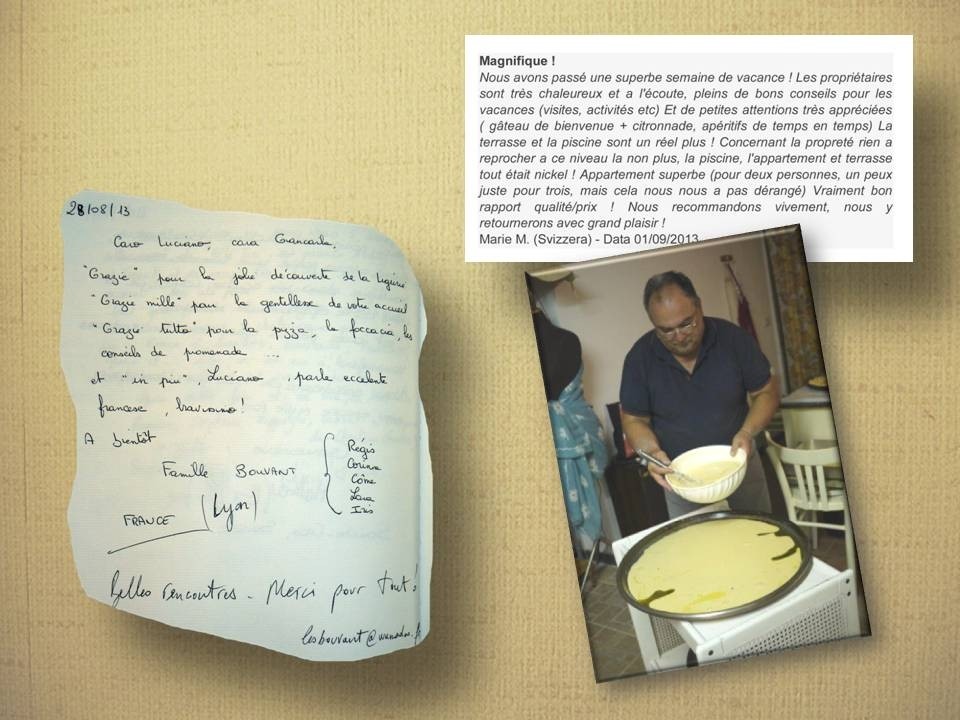 Magnifique !
Nous avons passé une superbe semaine de vacance ! Les propriétaires
sont très chaleureux et a l'écoute, pleins de bons conseils pour les
vacances (visites, activités etc) Et de petites attentions très appréciées
( gâteau de bienvenue + citronnade, apéritifs de temps en temps) La
terrasse et la piscine sont un réel plus ! Concernant la propreté rien a
reprocher a ce niveau la non plus, la piscine, l'appartement et terrasse
tout était nickel ! Appartement superbe (pour deux personnes, un peux
juste pour trois, mais cela nous nous a pas dérangé) Vraiment bon
rapport qualité/prix ! Nous recommandons vivement, nous y
retournerons avec grand plaisir !
Marie M. (Svizzera) - Data 01/09/2013
28/08/13
Caro Luciano, cara Giancarla,
"Grazie" pour la jolie découverte de la Ligurie
"Grazie mille" pour la gentillesse de votre accueil
"Grazie tutto" pour la pizza, la foccacia, les
conseils de promenade ...
et "in piu", Luciano, parle eccelente
francese, bravissimo!
A bientôt
Famille BOUVANT
Régis
Corinne
Côme
Lara
Iris
FRANCE (Lyon)
Belles rencontres - Merci pour tout!
lesbouvant@wanadoo.fr